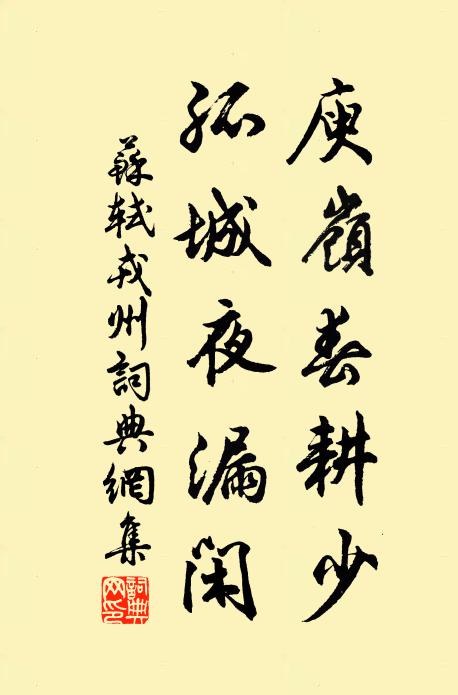 庾嶺春耕少
孤城夜漏閑
蘇軾戎州詞典網集
詞典网印